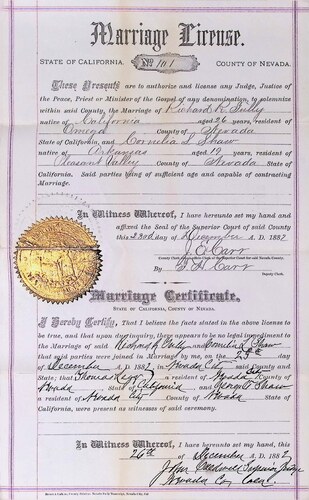 Marriage License.
STATE OF CALIFORNIA, No 101 COUNTY OF NEVADA.
These Presents are to authorize and license any Judge, Justice
of the Peace, Priest or Minister of the Gospel of any denomination, to solemnize
within said County, the Marriage of Richard R. Tully
native of California aged 26 years, resident of
Omega County of Nevada
State of California, and Cornelia L Shaw
native of Arkansas aged 19 years, resident of
Pleasant Valley County of Nevada
State of California. Said parties being of sufficient age and capable of contracting
Marriage.
In Witness Whereof, I have hereunto set my hand and
affixed the Seal of the Superior Court of said County
this 23rd day of December A. D. 1887
J. E. Carr
County Clerk and Clerk of the Superior Court for said Nevada County.
By F. H. Carr
Deputy Clerk.
Marriage Certificate.
STATE OF CALIFORNIA, COUNTY OF NEVADA.
I Hereby Certify, That I believe the facts stated in the above license
to be true, and that upon due inquiry, there appears to be no legal impediment to
the Marriage of said Richard R. Tully and Cornelia L. Shaw
that said parties were joined in Marriage by me, on the 25th day
of December A. D. 1887 in Nevada City said County and
State; that Thomas a resident of Nevada City
Nevada State of California and George Shaw
a resident of Nevada City County of Nevada State of
California, were present as witnesses of said ceremony.
In Witness Whereof, I have hereunto set my hand, this
26th day of December A. D. 1887
John Caldwell Superior Judge
Nevada Co